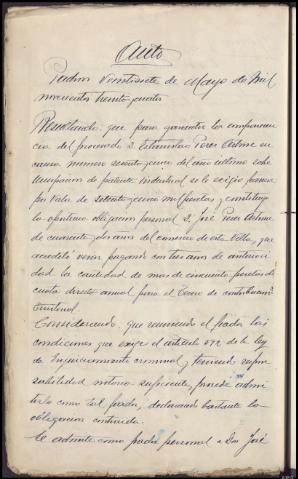 Auto
Veintisiete de Mayo de mil
novecientos treinta y cuatro
Resultando: que para garantir la comparecen
cia del procesado D. Estanislao Perez Artime en
causa número setenta y cinco del año último sobre
de patente industrial se le exigió fianza
por valor de setenta y cinco mil pesetas y constituyó
la oportuna obligación personal D. José Perez Artime
de cuarenta y dos años del comercio de esta Villa, que
acreditó venir pagando con tres años de anteriori
dad la cantidad de mas de cincuenta pesetas de
cuota directa anual para el Tesoro de contribución
territorial.
Considerando: que reuniendo el fiador las
condiciones que exige el artículo 592 de la ley
de Enjuiciamiento criminal y teniendo respon
sabilidad notoria suficiente, procede admi
tirlo como tal fiador, declarando bastante la
obligación contraida.
Se admite como fiador personal a Don José